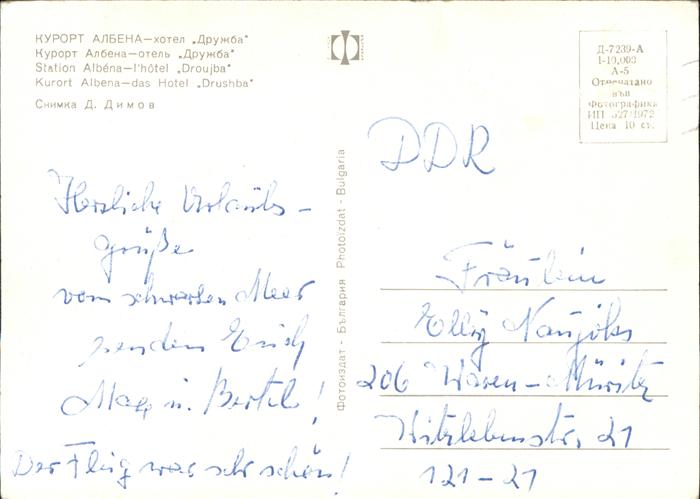 КУРОРТ АЛБЕНА—хотел „Дружба"
Курорт Албена—отель „Дружба"
Station Albéna—l'hôtel „Droujba"
Kurort Albena—das Hotel „Drushba"
Снимка Д. Димов
Д-7239-А
1-10,003
А-5
Отпечатано
във
Фотографика
ИП 527/1972
Цена 10 ст.
Фотоиздат - България Photoizdat - Bulgaria
Herzliche Urlaubs-
grüße
vom schwarzen Meer
senden Euch
u. Bertel!
Der Flug war sehr schön!
DDR
Fräulein
Elly
206 Waren-Müritz
21
121-21